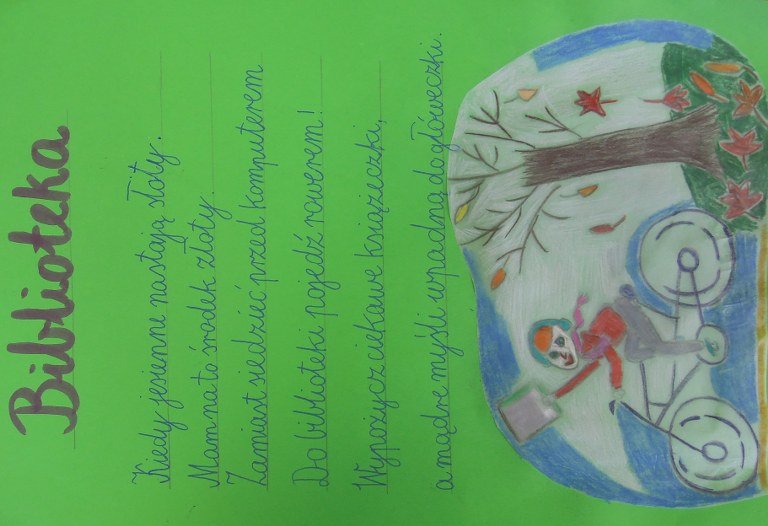 Biblioteka
Kiedy jesienne nastają słoty.
Mam na to środek złoty.
Zamiast siedzieć przed komputerem
Do biblioteki pojedź rowerem!
Wypożycz ciekawe książeczki,
a mądre myśli wpadną do główeczki.